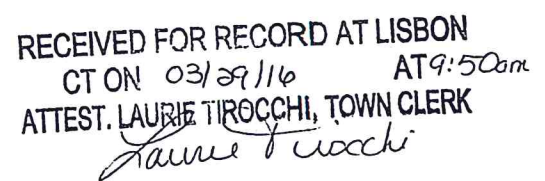 RECEIVED FOR RECORD AT LISBON
CT ON 03/29/16 AT 9:50am
ATTEST. LAURIE TIROCCHI, TOWN CLERK
Laurie Tirocchi